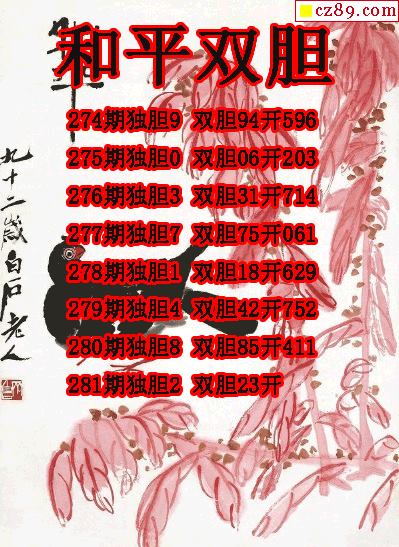 cz89.com
和平双胆
274期独胆9 双胆94开596
275期独胆0 双胆06开203
276期独胆3 双胆31开714
277期独胆7 双胆75开061
278期独胆1 双胆18开629
279期独胆4 双胆42开752
280期独胆8 双胆85开411
281期独胆2 双胆23开
九十二岁白石老人